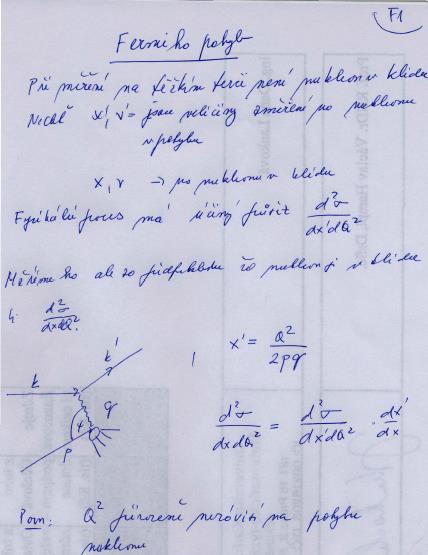 F1
Fermiho pohyb
Při měření na těžkém terči není nukleon v klidu
Nechť x', ν' = jsou veličiny změření na nukleonu
v pohybu
x, ν → na nukleonu v klidu
Fyzikální proces má účinný průřez d²σ/dx'dQ²
Měříme ho ale za předpokladu že nukleon je v klidu
tj. d²σ/dxdQ².
k k' q φ p
x' = Q²/2pq
d²σ/dxdQ² = d²σ/dx'dQ² · dx'/dx
Pozn: Q² přirozeně nezávisí na pohybu
nukleonu